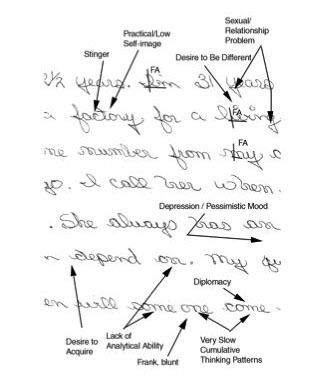 Sexual/
Relationship
Problem
Practical/Low
Self-image
Stinger
Desire to Be Different
FA
½ years. I'm 31 years
FA
a factory for a living
FA
number from my
go. I call her when.
Depression / Pessimistic Mood
. She always has an
depend on. My
Diplomacy
en will some one come
Desire to
Acquire
Lack of
Analytical Ability
Frank, blunt
Very Slow
Cumulative
Thinking Patterns